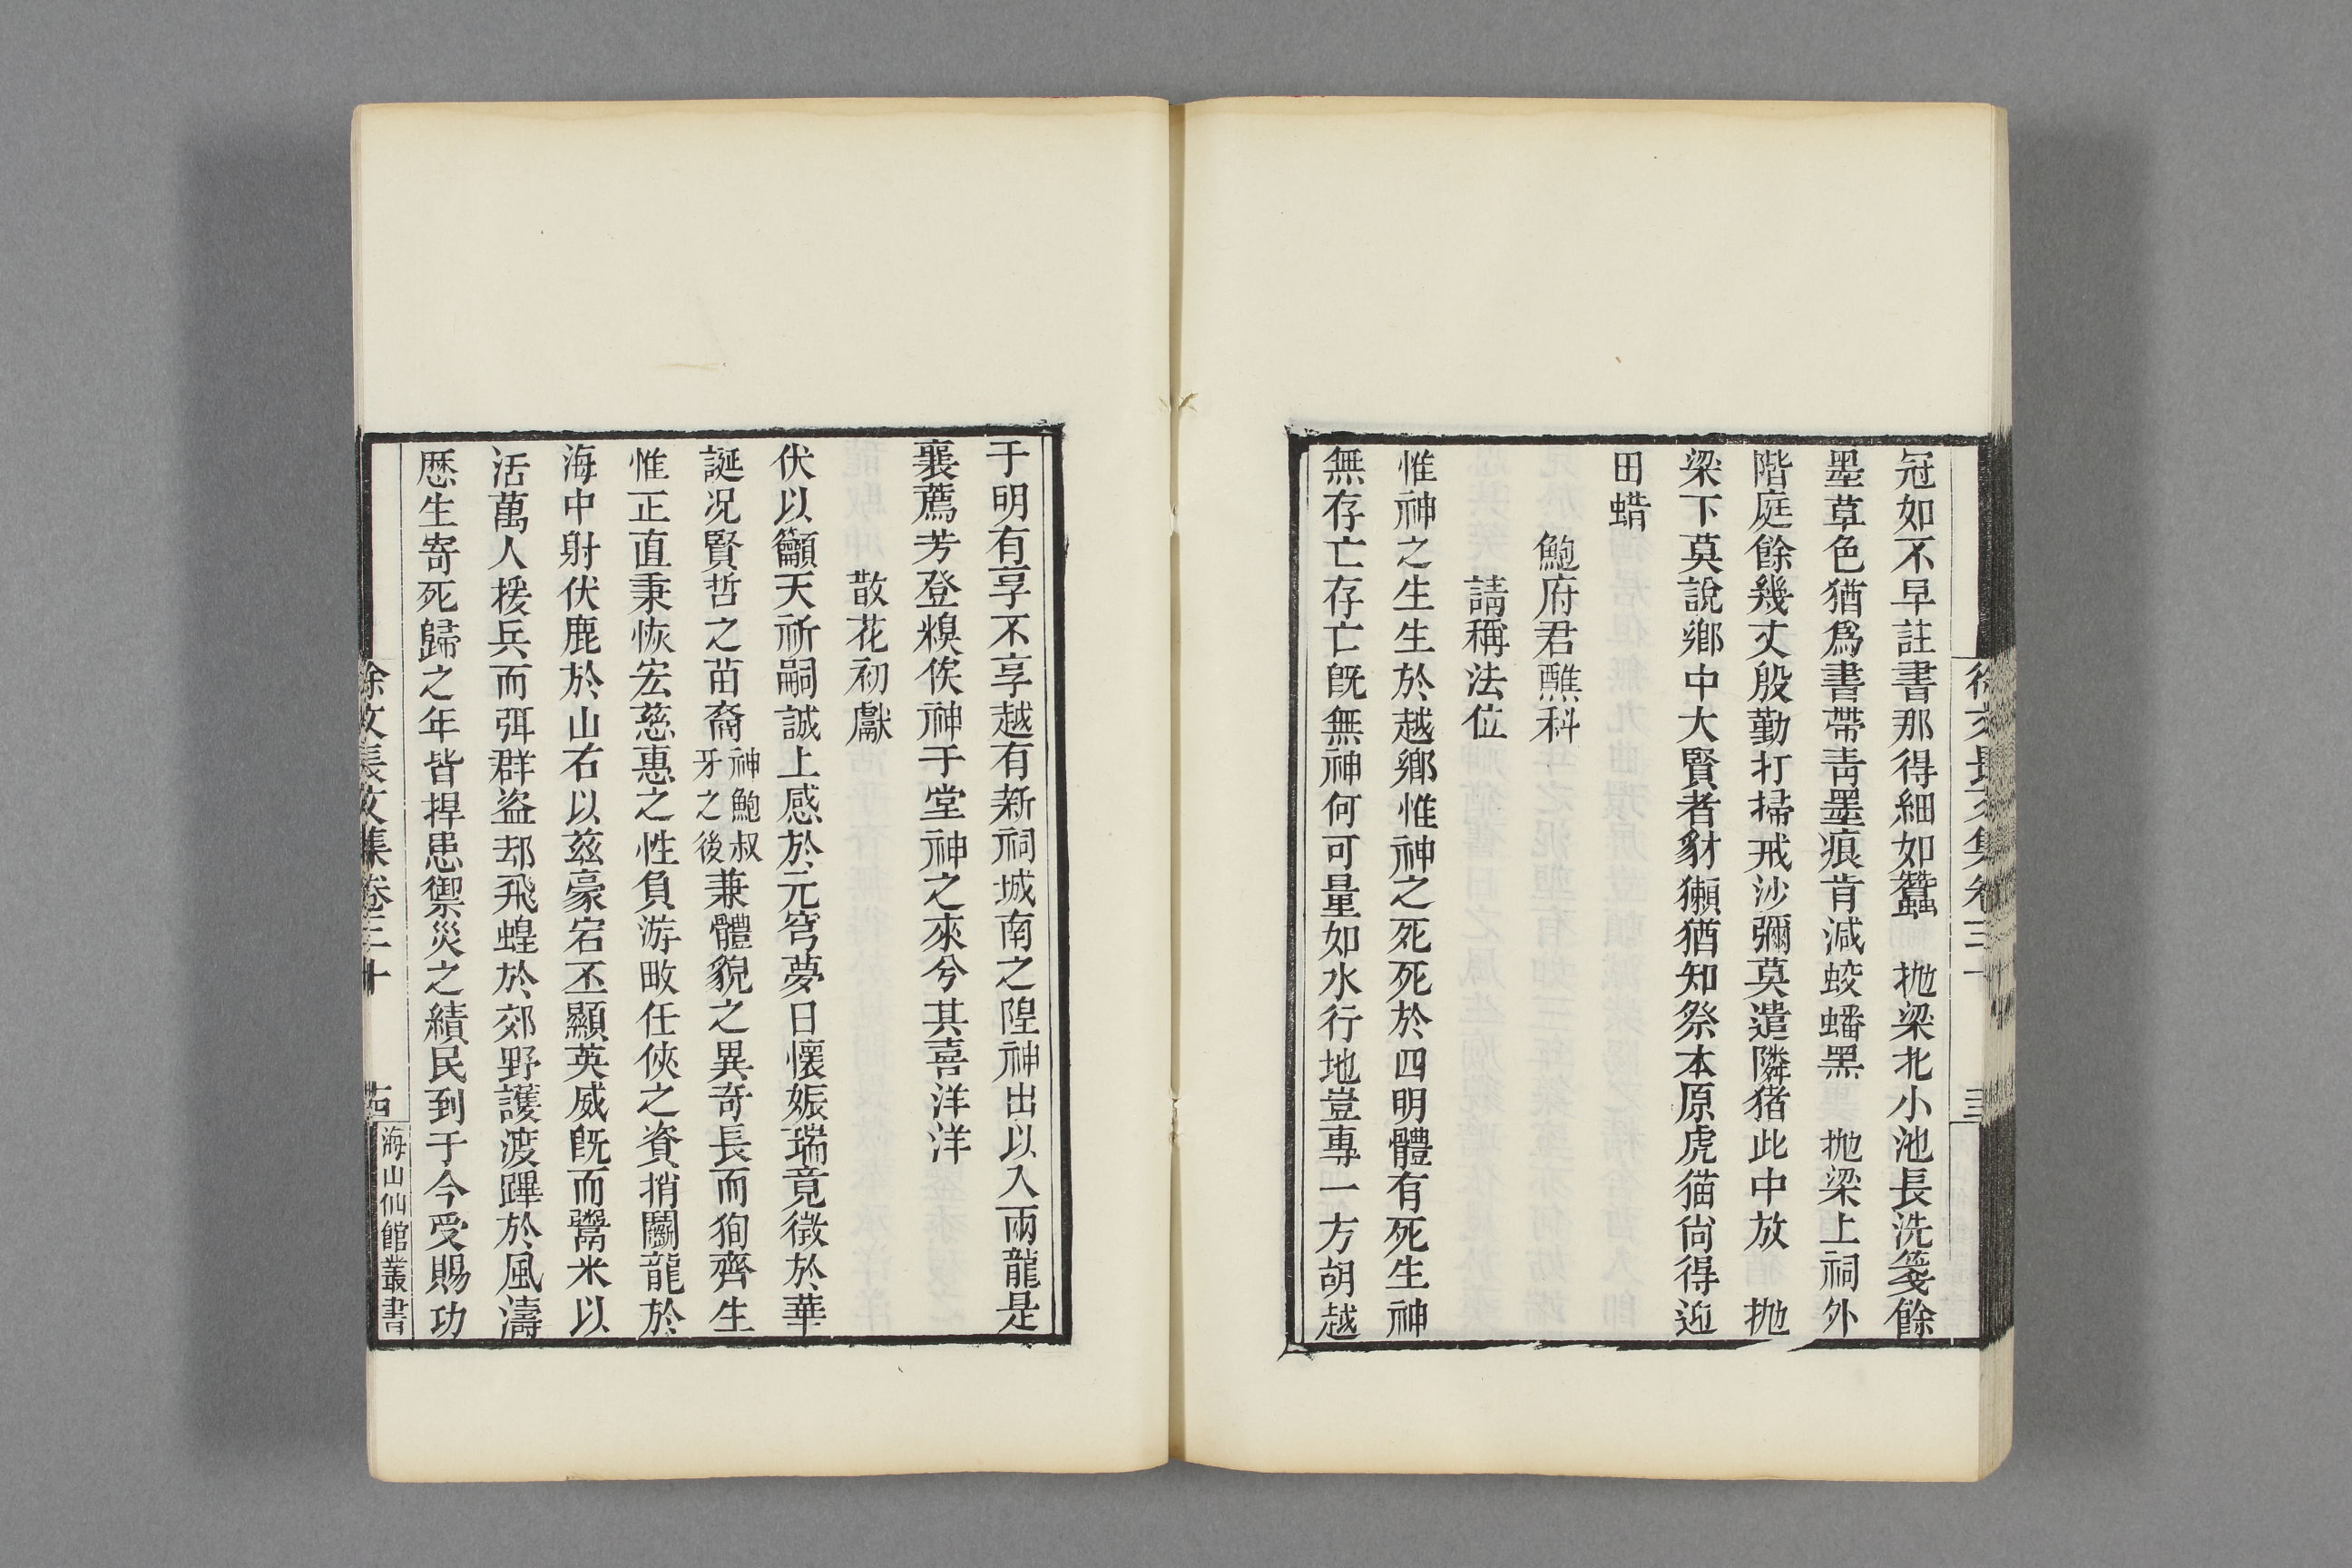 冠如不早註書那得細如蠶　抛梁北小池長洗箋餘
墨草色猶爲書帶靑墨痕肯減蛟蟠黑　抛梁上祠外
階庭餘幾丈殷勤打掃戒沙彌莫遣隣猪此中放　抛
梁下莫說鄉中大賢者豺獺猶知祭本原虎猫尙得迎
田蜡
鮑府君醮科
請稱法位
惟神之生生於越鄉惟神之死死於四明體有死生神
無存亡存亡旣無神何可量如水行地豈專一方胡越
于明有享不享越有新祠城南之隍神出以入兩龍是
襄薦芳登糗俟神于堂神之來兮其喜洋洋
散花初獻
伏以籲天祈嗣誠上感於元穹夢日懷娠瑞竟徵於華
誕况賢哲之苗裔神鮑叔牙之後兼體貌之異奇長而狥齊生
惟正直秉恢宏慈惠之性負游畋任俠之資捎鬭龍於
海中射伏鹿於山右以茲豪宕丕顯英威旣而鬻米以
活萬人援兵而弭群盜却飛蝗於郊野護渡蹕於風濤
歷生寄死歸之年皆捍患禦災之績民到于今受賜功
徐文長文集卷三十
海山仙館叢書